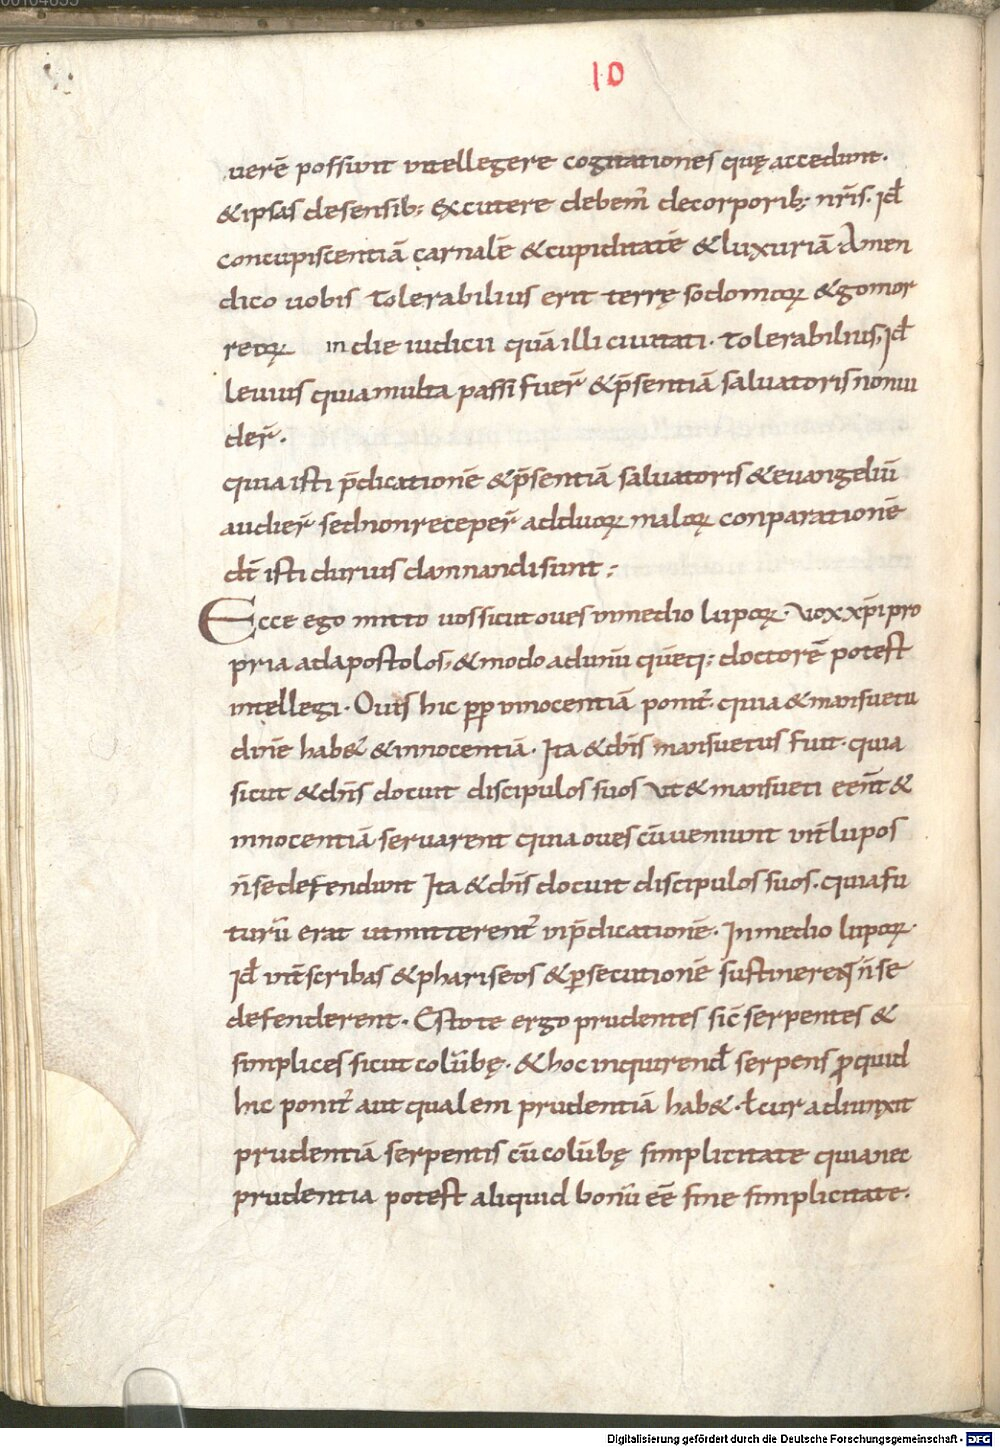 10
uerē possunt intellegere cogitationes quę accedunt.
& ipsas de sensib; excutere debem̃ de corporib; nr̃is. id̄
concupiscentiā carnalē & cupiditatē & luxuriā Amen
dico uobis tolerabilius erit terrę sodomoꝝ & gomor
reoꝝ in die iudicii quā illi ciuitati. tolerabilius, id̄
leuius quia multa passi fuer̃ & p̄sentiā saluatoris non ui
der̃.
quia isti p̄dicationē & p̄sentiā saluatoris & euangeliū
audier̃ sed non receper̃ ad duoꝝ maloꝝ conparationē
dc̄ isti durius damnandi sunt;
Ecce ego mitto uos sicut oues in medio lupoꝝ. Vox xp̄i pro
pria ad apostolos, & modo ad unū quēq; doctorē potest
intellegi. Ouis hic pp̄ innocentiā ponit̃. quia & mansuetu
dinē hab& & innocentiā. Ita & dn̄s mansuetus fuit. quia
sicut & dn̄s docuit discipulos suos ut & mansueti eēnt &
innocentiā seruarent quia oues cū ueniunt int̄ lupos
n̄ se defendunt Ita & dn̄s docuit discipulos suos. quia fu
turū erat ut mitterent̃ in p̄dicationē. In medio lupoꝝ.
id̄ int̄ scribas & phariseos & ꝑsecutionē sustinerent n̄ se
defenderent. Estote ergo prudentes sic̄ serpentes &
simplices sicut colūbę. & hoc inquirend̄ serpens ꝓ quid
hic ponit̃ aut qualem prudentiā hab&. ł cur adiunxit
prudentiā serpentis cū colūbę simplicitate quia nec
prudentia potest aliquid bonū eē sine simplicitate.
Digitalisierung gefördert durch die Deutsche Forschungsgemeinschaft - DFG